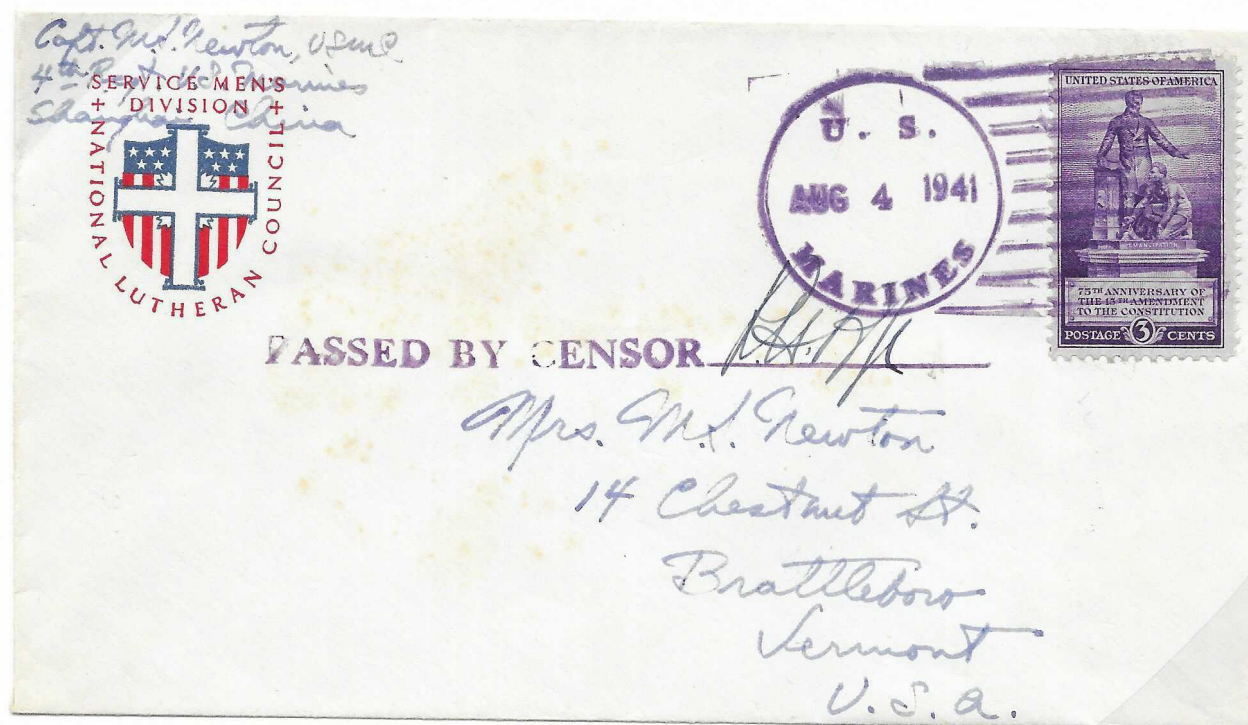 Capt. M.S. Newton, USMC
4th Regt. U.S. Marines
Shanghai China
SERVICE MEN'S
DIVISION
+ NATIONAL LUTHERAN COUNCIL +
U. S.
AUG 4 1941
MARINES
UNITED STATES OF AMERICA
EMANCIPATION
75TH ANNIVERSARY OF
THE 13TH AMENDMENT
TO THE CONSTITUTION
POSTAGE 3 CENTS
PASSED BY CENSOR
Mrs. M.S. Newton
14 Chestnut St.
Brattleboro
Vermont
U.S.A.